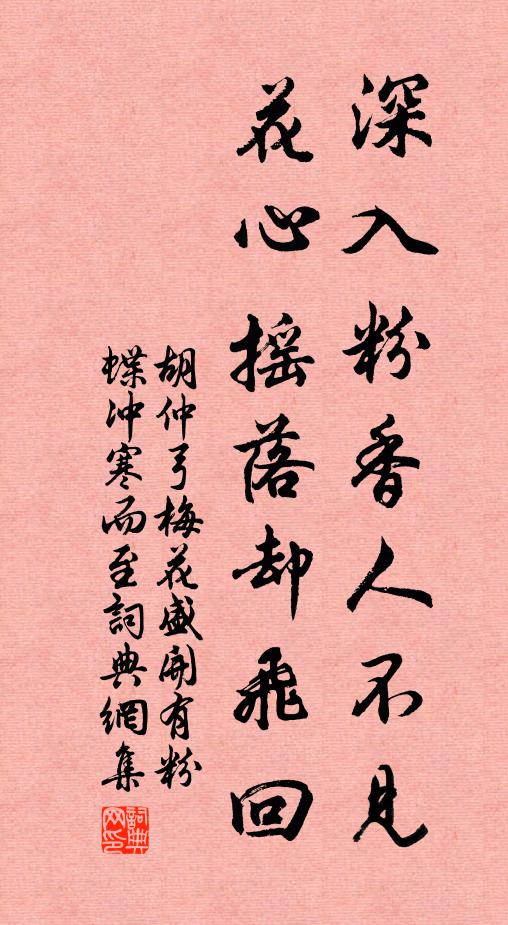 深入粉香人不見
花心摇落却飛回
胡仲弓梅花盛開有粉
蝶冲寒而至詞典網集
詞典
网印